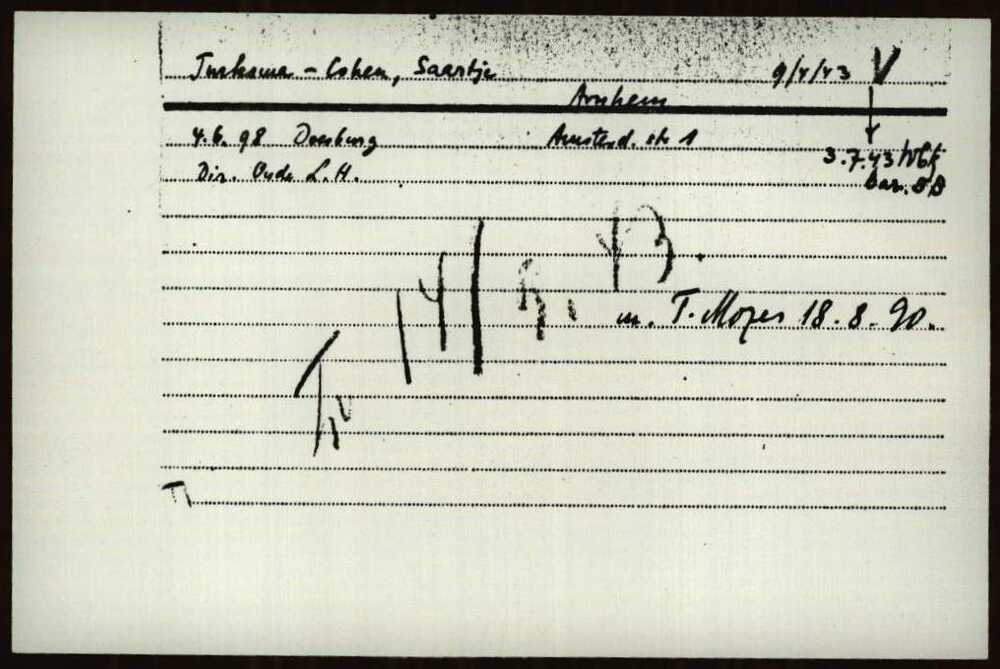 Turksma - Cohen, Saartje 9/4/43 V
Arnhem
4.6.98 Doesburg Amsterd. str 1
3.7.43 Wbk
Dir. Oude L.H. bar. 58
14/9. 43.
m. T. Mozes 18.8.90.